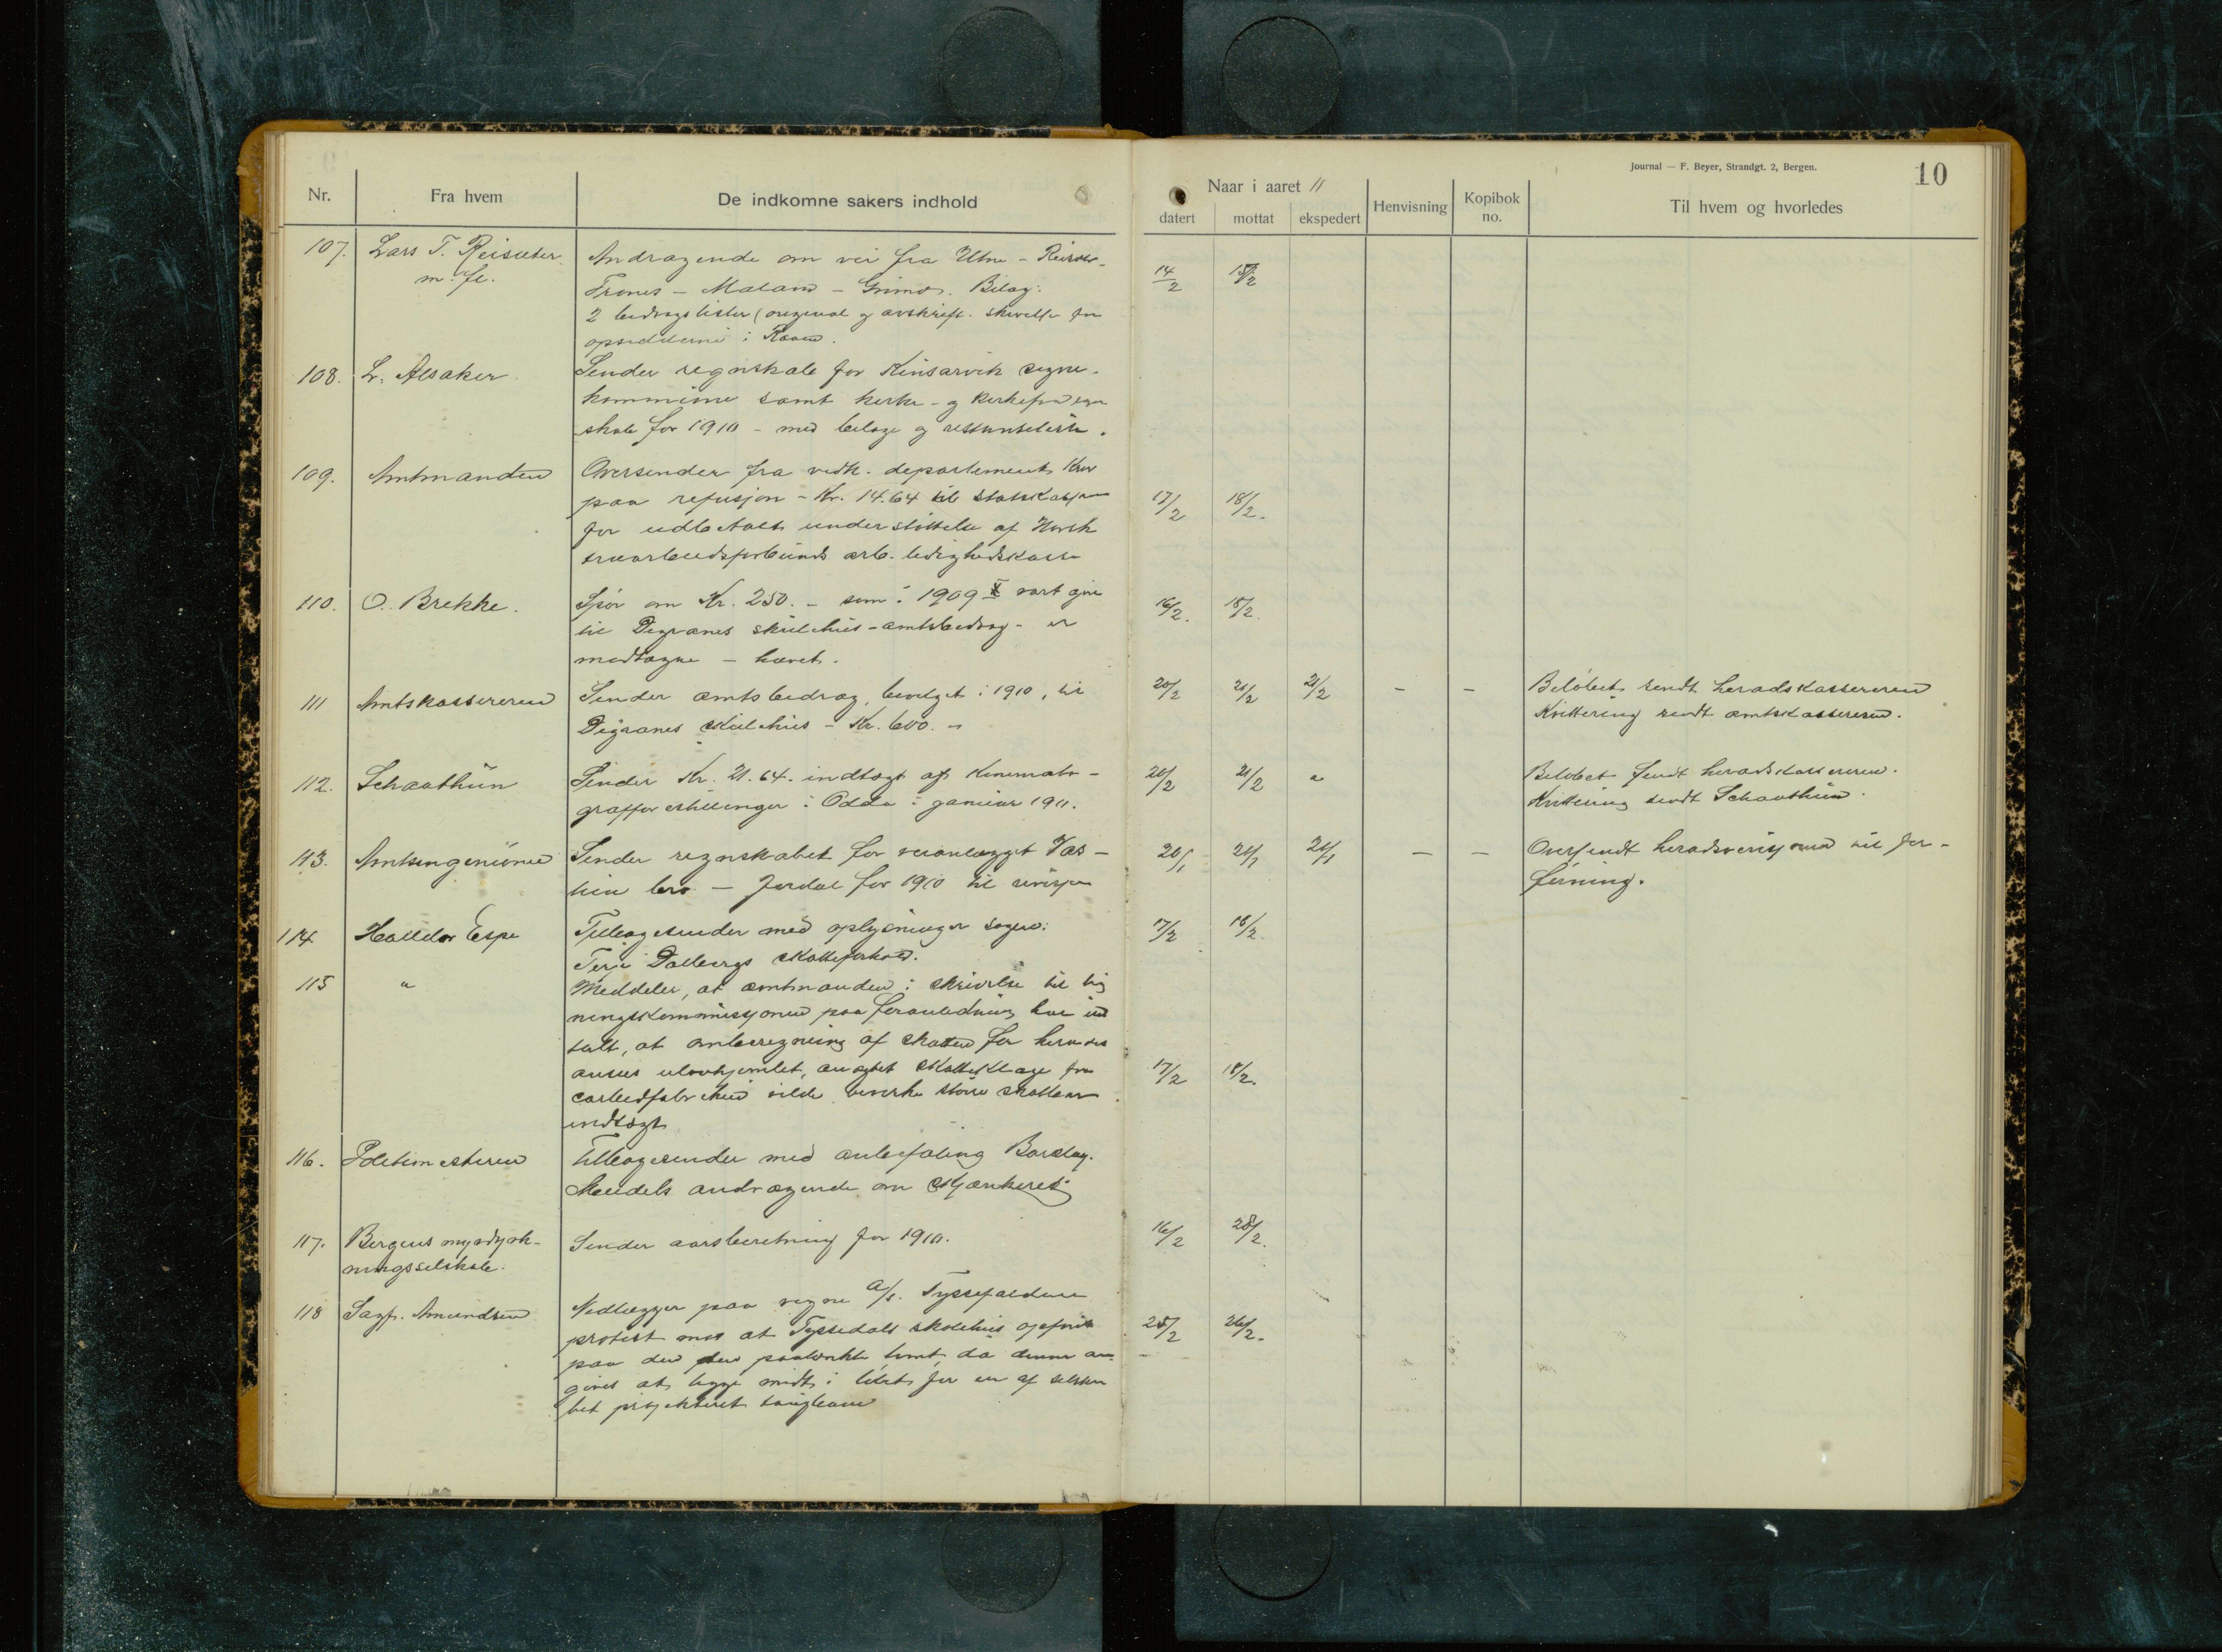 Journal — F. Beyer, Strandgt. 2, Bergen.
10
Nr. Fra hvem De indkomne sakers indhold Naar i aaret 11 Henvisning Kopibok no. Til hvem og hvorledes
datert mottat ekspedert
107. Lars T. Reisæter Andragende om vei fra Utne - Reisæter-
m. fl. Trones - Maland - Grimo. Bilag: 14/2 15/2
2 bidragslister (original og avskrift. skrivelse fra
opsidderne i
108. L. Alsaker Sender regnskab for Kinsarvik sogne-
kommune samt kirke- og
skab for 1910 - med bilage og restanseliste.
109. Amtmanden Oversender fra vedk. departement krav
paa refusjon - Kr. 14.64 til statskassen 17/2 18/2.
for udbetalt understøttelse af Norsk
arb. ledighedskasse
110. O. Brekke. Spør om Kr. 250. - som i 1909 vart give 16/2. 18/2.
til Digranes skulehus - amtsbidrag - er
modtagne - hævet.
111 Amtskassereren Sender amtsbidrag, bevilget i 1910, til 20/2 21/2 21/2 - - Beløbet sendt heradskassereren
Digranes skulehus - Kr. 600. - Kvittering sendt amtskassereren.
112. Schaathun Sender Kr. 21.64. indtægt af kinemato- 20/2 21/2 " Beløbet sendt heradskassereren.
graffforestillinger i Odda i januar 1911. Kvittering sendt Schaathun.
113. Amtsingeniøren Sender regnskabet for veianlægget Vas- 20/1 21/1 21/1 - - Oversendt heradsrevisjonen til
bro - Jordal for 1910 til revisjon
114 Halldor Espe Tilbagesender med oplysninger 17/2 18/2.
Terje Dalbergs skatteforhold.
115 " Meddeler, at amtmanden i skrivelse til lig
ningskommissjonen paa foranledning har ud
talt, at omberegning af skatten for
ansees ulovhjemlet, skatteklage fra 17/2 18/2.
carbidfabrikken vilde bevirke større skatte
indtægt
116. Politimesteren Tilbagesender med anbefaling Barclay.
andragende om skjænkeret.
117. Bergens myrdyrk- Sender aarsberetning for 1910. 16/2 25/2.
ningsselskab.
118 Sagf. Amundsen Nedlægger paa vegne A/s. Tyssefaldene
protest mod at Tyssedals skolehus opføres 25/2 26/2.
paa den paatænkte tomt, da denne an-
gives at ligge midt i løbet for en af selska
bet projekteret taugbane